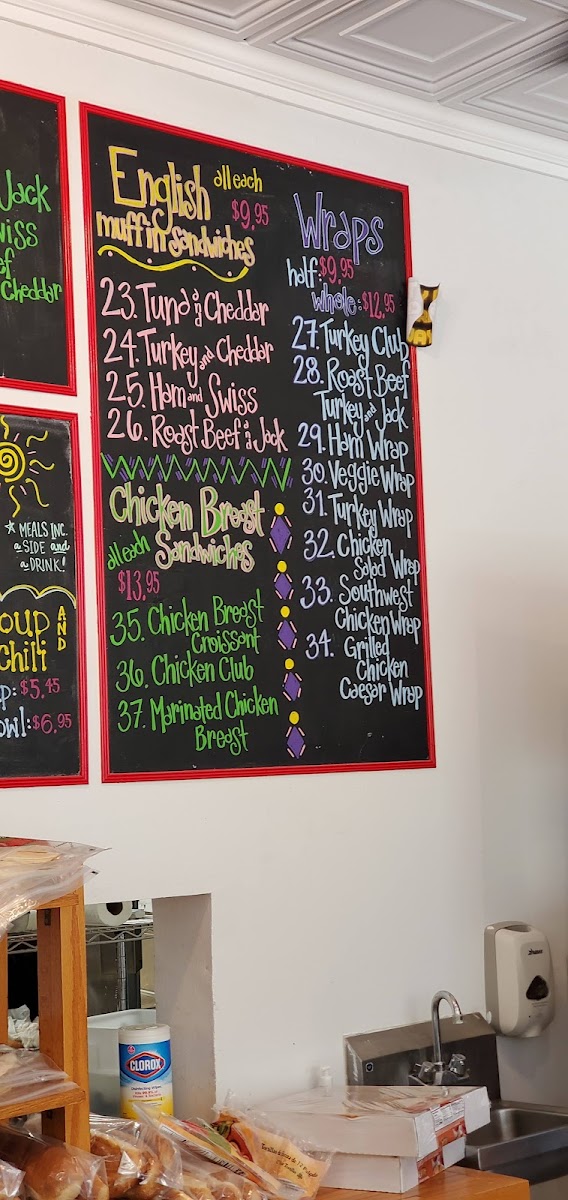 Jack
Cheddar
* MEALS INC.
a SIDE and
a DRINK!
AND
Chili
$5.45
$6.95
English all each
muffin sandwiches $9.95
23. Tuna and Cheddar
24. Turkey and Cheddar
25. Ham and Swiss
26. Roast Beef and Jack
Chicken Breast
all each Sandwiches
$13.95
35. Chicken Breast
Croissant
36. Chicken Club
37. Marinated Chicken
Breast
Wraps
half: $9.95
whole: $12.95
27. Turkey Club
28. Roast Beef
Turkey and Jack
29. Ham Wrap
30. Veggie Wrap
31. Turkey Wrap
32. Chicken
Salad Wrap
33. Southwest
Chicken Wrap
34. Grilled
Chicken
Caesar Wrap
CLOROX